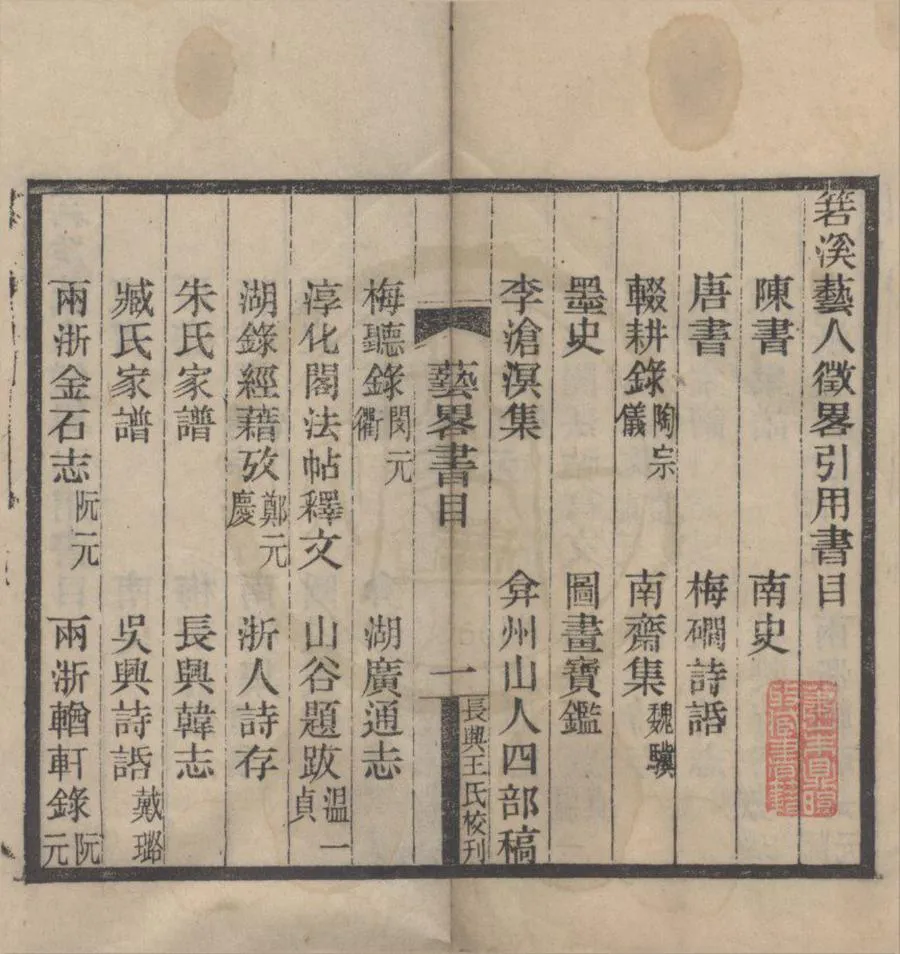 箬溪藝人徵畧引用書目
陳書 南史
唐書 梅磵詩話
輟耕錄陶宗儀 南齋集魏驥
墨史 圖畫寶鑑
李滄溟集 弇州山人四部稿
藝畧書目 一 長興王氏校刊
梅聽錄閔元衢 湖廣通志
淳化閣法帖釋文 山谷題跋温一貞
湖錄經籍攷鄭元慶 浙人詩存
朱氏家譜 長興韓志
臧氏家譜 吳興詩話戴璐
兩浙金石志阮元 兩浙輶軒錄阮元